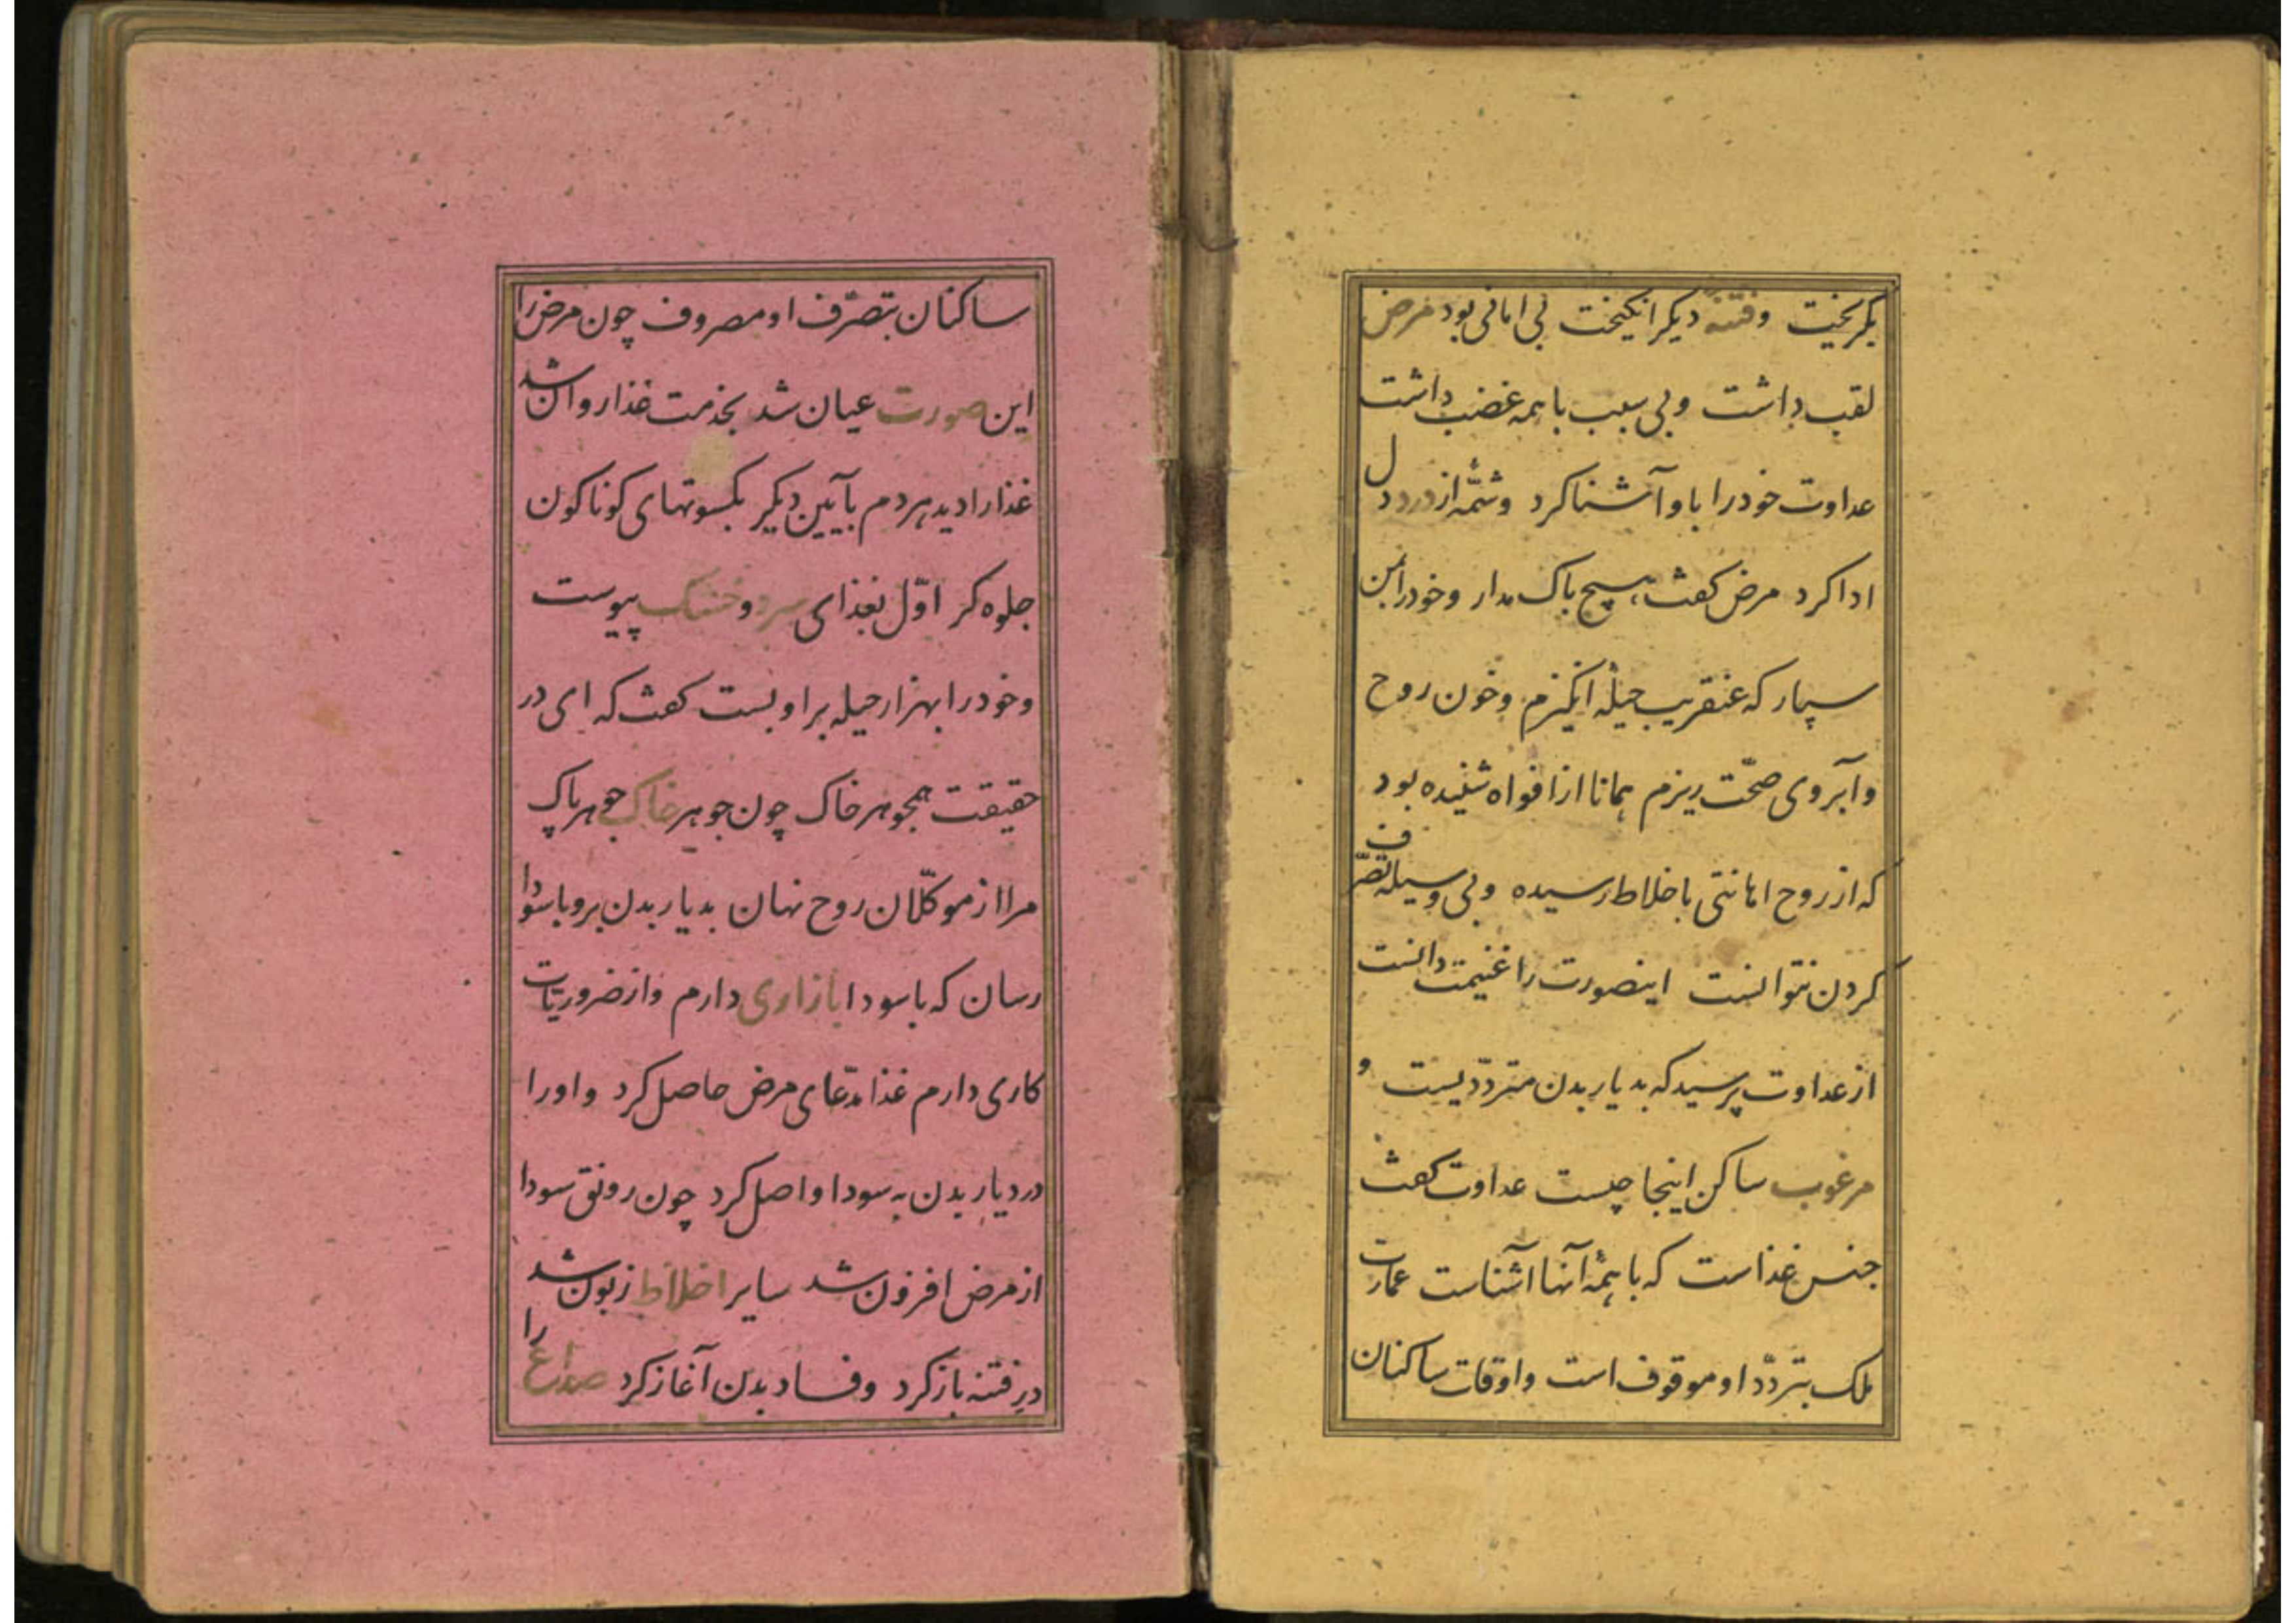 بکریخت و فتنهٔ دیکر انکیخت بی امانی بود مرض
لقب داشت و بی سبب با همه غضب داشت
عداوت خود را با او آشنا کرد و شمّهٔ از درد دل
ادا کرد مرض کفت هیچ باک مدار و خود را بمن
سپار که عنقریب حیلهٔ انکیزم و خون روح
و آبروی صحّت ریزم همانا از افواه شنیده بود
که از روح امانتی باخلاط رسیده و بی وسیله تصرّف
کردن نتوانست اینصورت را غنیمت دانست
از عداوت پرسید که بدیار بدن متردّد کیست و
مرغوب ساکن اینجا چیست عداوت کفت
جنس غذاست که با همهٔ آنها آشناست عمارت
ملک بتردّد او موقوف است و اوقات ساکنان
ساکنان بتصرّف او مصروف چون مرض را
این صورت عیان شد بخدمت غذا روان شد
غذا را دید هر دم بآیین دیکر بکسوتهای کوناکون
جلوه کر اوّل بغذای سرد و خشک پیوست
و خود را بهزار حیله بر او بست کفت که ای در
حقیقت همجوهر خاک چون جوهر خاک جوهر پاک
مرا از موکّلان روح نهان بدیار بدن بر و با سودا
رسان که با سودا بازاری دارم و از ضروریات
کاری دارم غذا مدّعای مرض حاصل کرد و او را
در دیار بدن به سودا واصل کرد چون رونق سودا
از مرض افزون شد سایر اخلاط زبون شد
در فتنه باز کرد و فساد بدن آغاز کرد صداع را